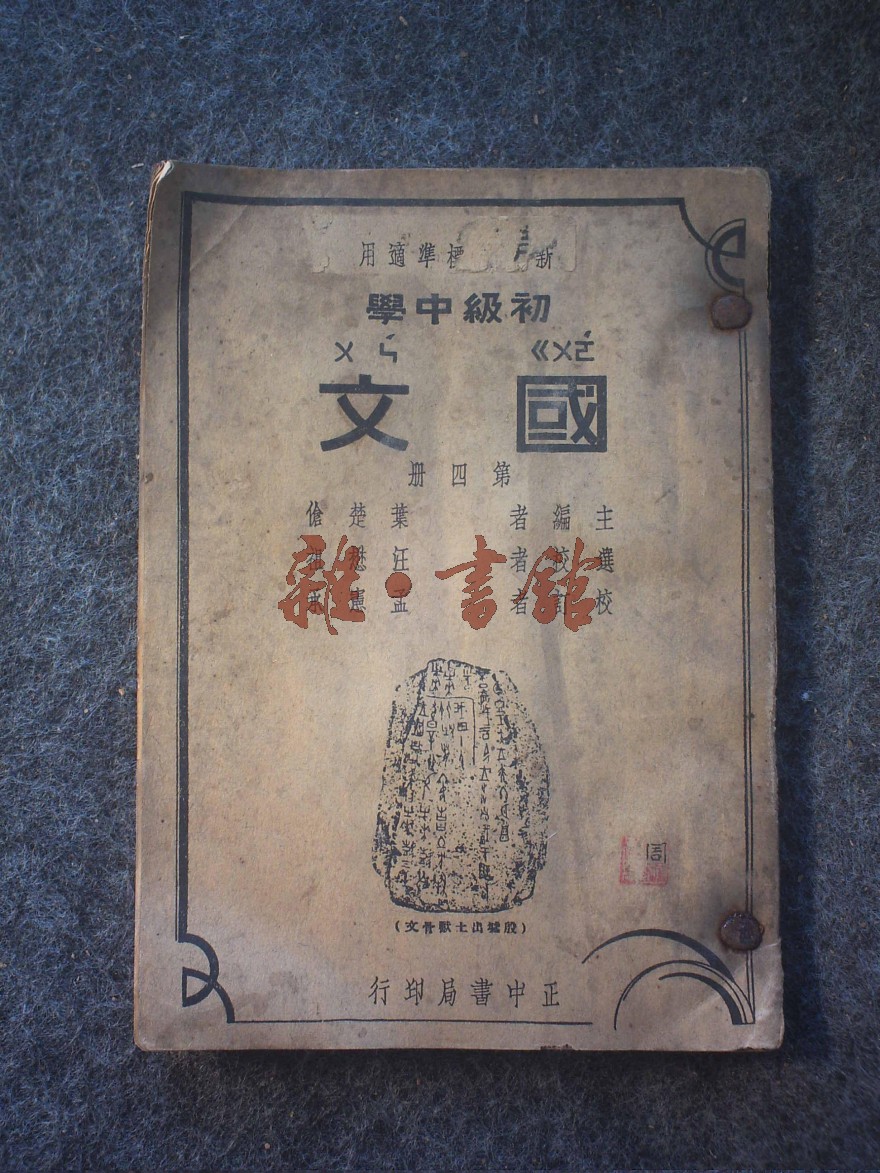 新標準適用
初級中學
ㄍㄨㄛˊ ㄨㄣˊ
國文
第四册
主編者 葉楚傖
選校者 汪懋祖
校訂者 孟憲承
雜·書館
(殷墟出土獸骨文)
正中書局印行